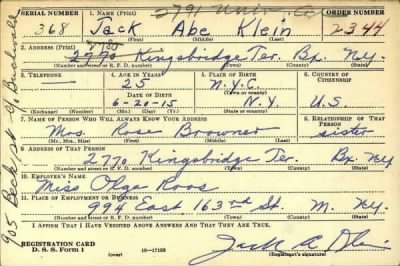 2791 Univ.
SERIAL NUMBER 1. NAME (Print) ORDER NUMBER
368 Jack Abe Klein 2344
(First) (Middle) (Last)
2. ADDRESS (Print)
2770 Kingsbridge Ter. Bx. N.Y.
(Number and street or R. F. D. number) (Town) (County) (State)
3. TELEPHONE 4. AGE IN YEARS 5. PLACE OF BIRTH 6. COUNTRY OF CITIZENSHIP
— 25 N.Y.C.
DATE OF BIRTH (Town or county)
6-20-15 N.Y. U.S.
(Exchange) (Number) (Mo.) (Day) (Yr.) (State or country)
7. NAME OF PERSON WHO WILL ALWAYS KNOW YOUR ADDRESS 8. RELATIONSHIP OF THAT PERSON
Mrs. Rose Browner sister
(Mr., Mrs., Miss) (First) (Middle) (Last)
9. ADDRESS OF THAT PERSON
2770 Kingsbridge Ter. Bx. Ny
(Number and street or R. F. D. number) (Town) (County) (State)
10. EMPLOYER'S NAME
Miss Olga Roos
11. PLACE OF EMPLOYMENT OR BUSINESS
994 East 163rd St. M. Ny.
(Number and street or R. F. D. number) (Town) (County) (State)
I AFFIRM THAT I HAVE VERIFIED ABOVE ANSWERS AND THAT THEY ARE TRUE.
REGISTRATION CARD
D. S. S. Form 1 (over) 16-17105 Jack A Klein
(Registrant's signature)
905 Beck St